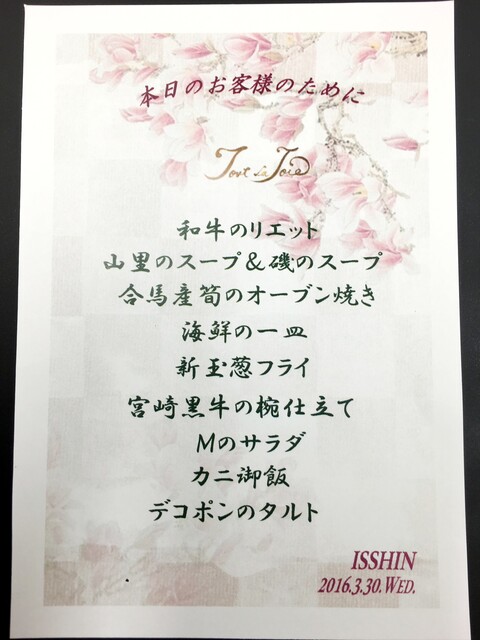 本日のお客様のために
Tort la Joie
和牛のリエット
山里のスープ＆磯のスープ
合馬産筍のオーブン焼き
海鮮の一皿
新玉葱フライ
宮崎黒牛の椀仕立て
Mのサラダ
カニ御飯
デコポンのタルト
ISSHIN
2016.3.30.WED.